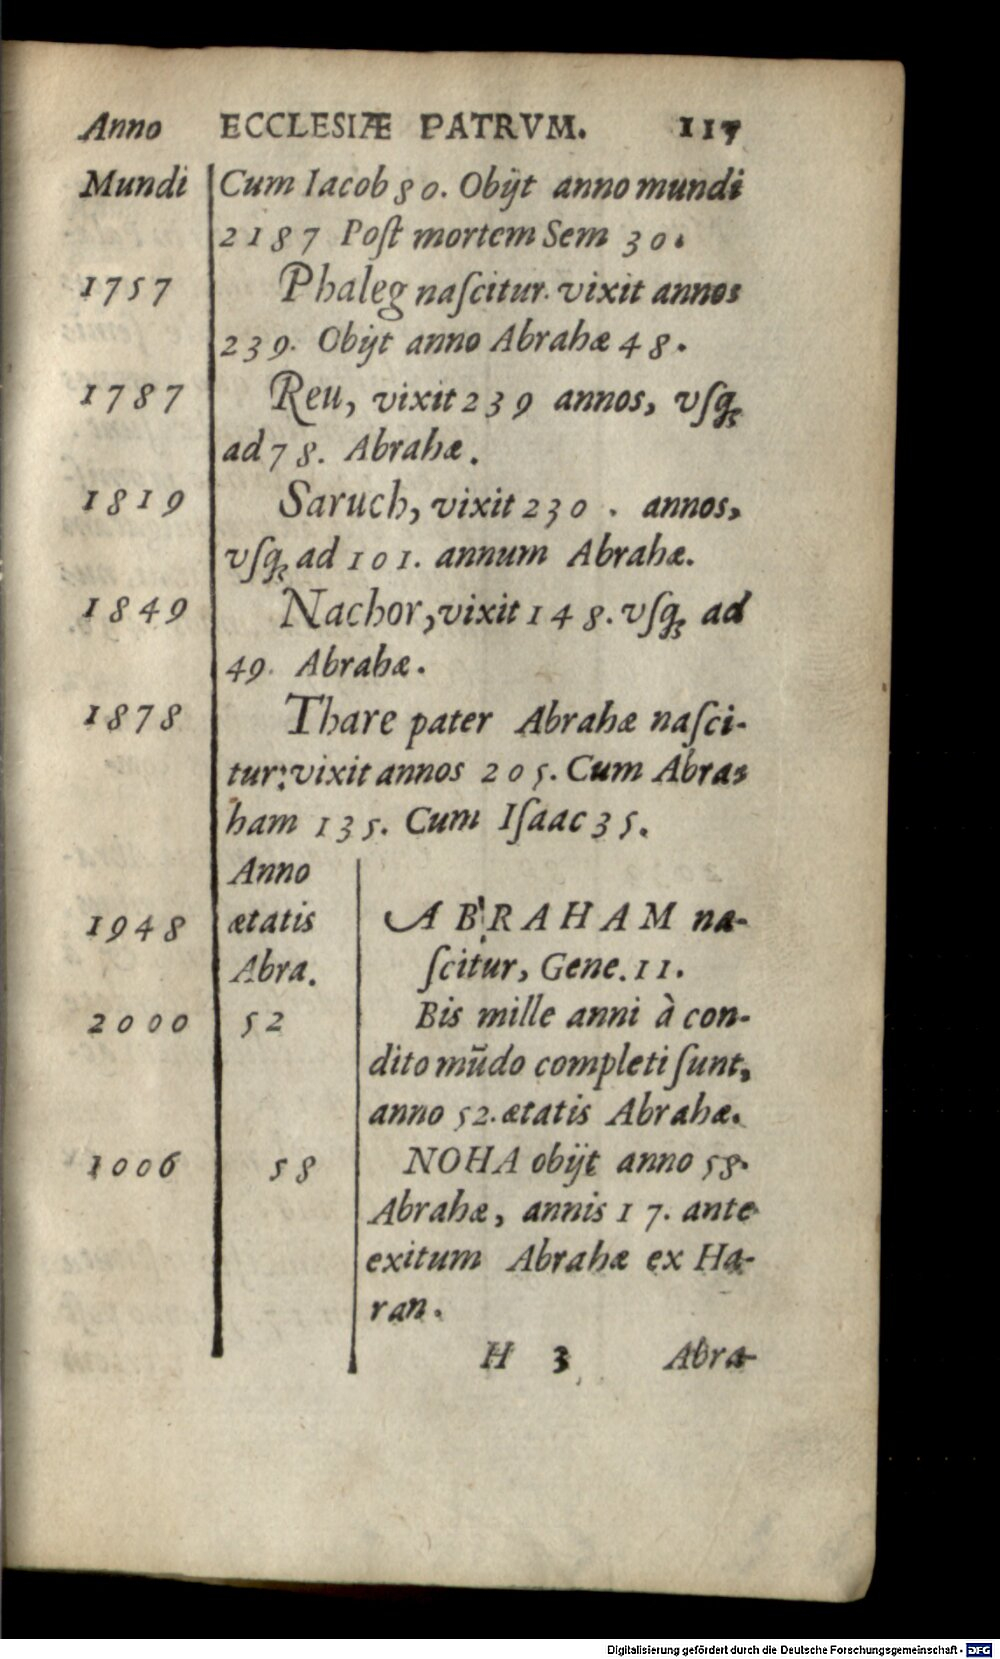 Anno ECCLESIÆ PATRVM. 117
Mundi Cum Iacob 80. Obijt anno mundi
2187 Poſt mortem Sem 30.
1757 Phaleg naſcitur. vixit annos
239. Obijt anno Abrahæ 48.
1787 Reu, vixit 239 annos, vſq;
ad 78. Abrahæ.
1819 Saruch, vixit 230. annos,
vſq; ad 101. annum Abrahæ.
1849 Nachor, vixit 148. vſq; ad
49. Abrahæ.
1878 Thare pater Abrahæ naſci-
tur: vixit annos 205. Cum Abra-
ham 135. Cum Iſaac 35.
Anno
1948 ætatis ABRAHAM na-
Abra. ſcitur, Gene. 11.
2000 52 Bis mille anni à con-
dito mūdo completi ſunt,
anno 52. ætatis Abrahæ.
1006 58 NOHA obijt anno 58.
Abrahæ, annis 17. ante
exitum Abrahæ ex Ha-
ran.
H 3 Abra-
Digitalisierung gefördert durch die Deutsche Forschungsgemeinschaft - DFG